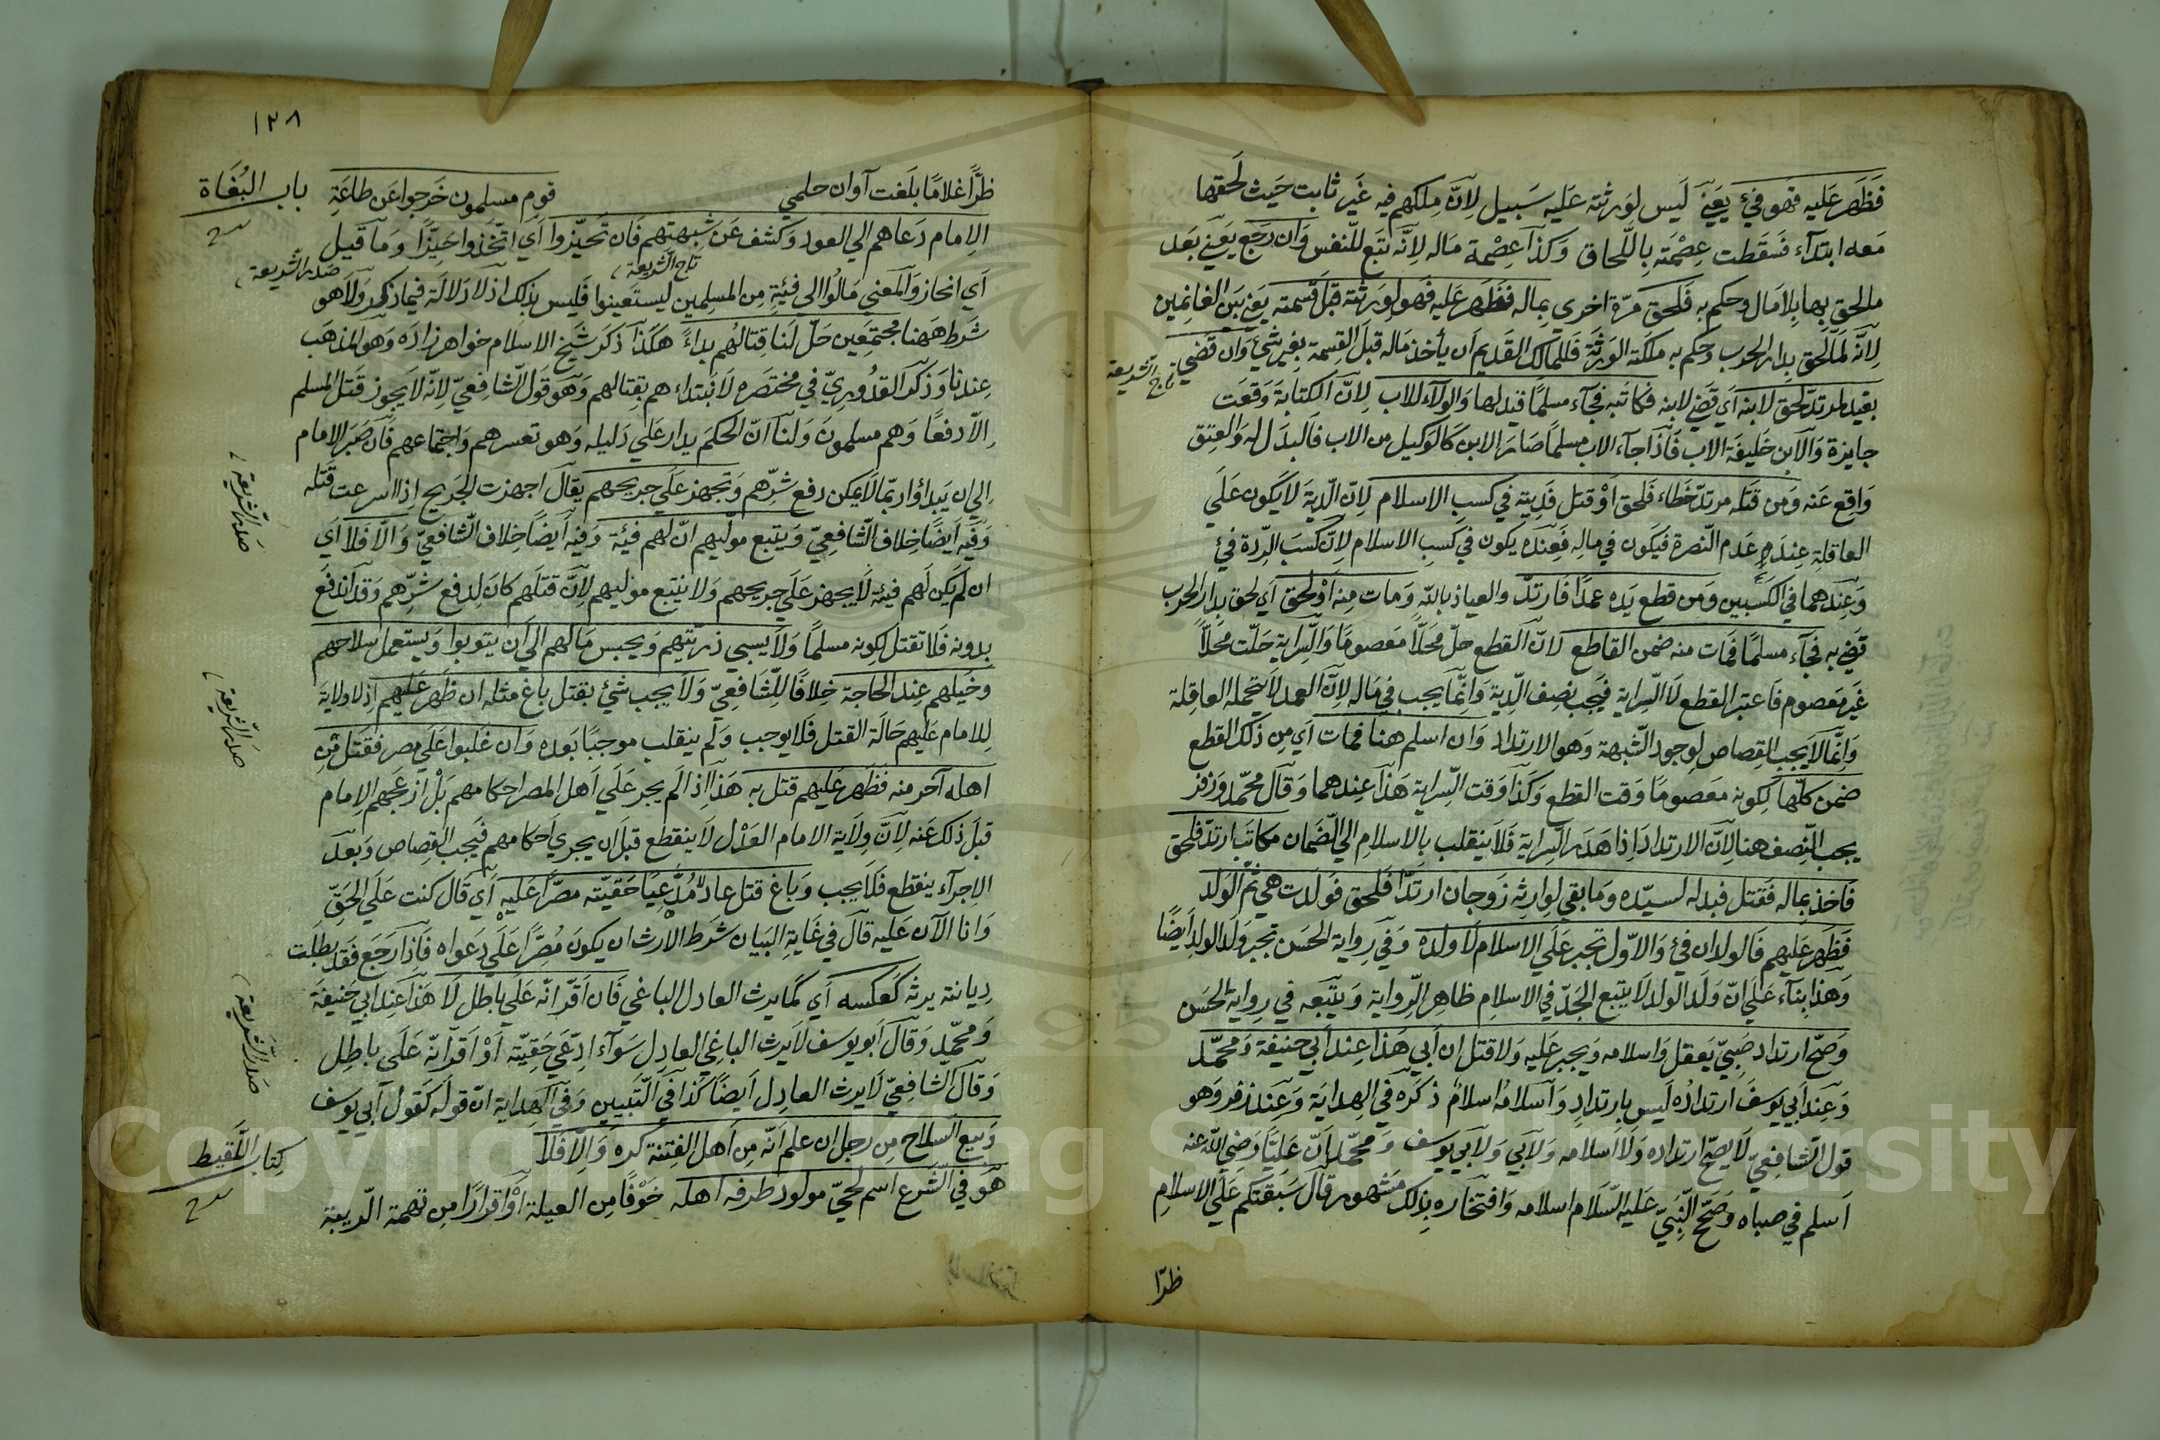 فَظَهَر عَليه فهو فيْ يعَني لَيس لوَرثته عَليه سَبيل لِاَنّ مِلكهم فيه غَير ثابت حَيث لَحقها
مَعه ابتدآء فسَقطت عِصْمَته باللّحاق وَكذا عِصْمة مَاله لِانّه تبَع للنّفس وَان رَجع يَعني بَعد
مالحق بها بلا مَال وحكم به فلحق مرّة اخري بماله فظَهر عَليه فهو لوَرثته قبل قسمته يعَني بَين الغانِمين
لِانّه لمّا لحق بدار الحرب وحكم به ملكه الوَرثة فالمالك القديم اَن يأخذ مَاله قبل القسمة بغير شئ وَان قضي
تاج الشريعة
بعَبد لمرتدّ لحق لابنه اَي قضي لابنه فكاتبه فجآء مسلمًا فبدلها وَالولآء للاب لِانّ الكتابة وَقعَت
جايزة وَالابن خَليفة الاب فَاذا جآء الاب مسلمًا صَار الابن كالوكيل من الاب فالبدَل له وَالعِتق
وَاقع عَنه وَمن قتله مرتدّ خَطاء فلحق اوْ قتل فَديته في كسب الاسلام لِانّ الدّية لَا يَكون عَلَي
العاقلة عِندَه عَدم النّصرة فيَكون في مالِه فعِنده يكون في كَسب الاسلام لِانّ كسَب الرّدة فئ
وَعِندهما في الكَسبين وَمن قطع يَده عمدًا فارتدّ والعياذ باللّه وَمات مِنه اَوْ لحق اَي لحق بدار الحرب
قضي به فجآء مسلمًا فمات منه ضمن القاطع لانّ القطع حلّ محَلّا مَعصومًا وَالسّراية حَلّت محلاّ
غَير مَعصوم فاعتبر القطع لَا السّراية فيَجب نصِف الدّية وَانّما يجب في مَاله لِانّ العمد لاَ تتحمله العاقِلة
وَانّما لَا يَجب القِصاص لوجود الشّبهة وَهو الارتداد وَان اسلم هنا فمات اَي مِن ذلك القطع
ضمن كلّها لكونه مَعصومًا وَقت القطع وَكذا وَقت السّراية هَذا عِندهما وَقالَ محمّد وَزفر
يجب النّصف هنا لِانّ الارتداد اذا هَدَر السّراية فَلاَ ينقلب بالاسلام الي الضّمان مكاتَب ارتدّ فلحق
فاخذ بماله فقتل فبدله لسيّده وَمَا بقي لوارثِه زوجان ارتدّا فَلحق فوَلدت هي ثم الوَلد
فَظَهر عَليهم فَالولدان فئ وَالاوّل تجبر عَلَي الاسلام لَا ولده وَفي رواية الحسَن تجبر وَلد الولد اَيضًا
وَهذا بنآء عَلَي انّ وَلَد الولد لَا يتبع الجَدّ في الاسلام ظاهر الرّواية وَيتبعه في رواية الحسَن
وَصحّ ارتداد صَبيّ يَعقل وَاسلامه ويجبر عَليه وَلا قتل ان اَبي هَذا عِند اَبي حنيفة وَمحمّد
وَعِند اَبي يوسفَ ارتدادُه لَيس بارتدادٍ وَاسلامُه اسلامٌ ذكَره في الهدايَة وَعِند زفر وَهو
قول الشّافعيّ لَا يصحّ ارتداده وَلا اسلامه وَلاَبي يوسف وَمحمّد اَنّ عَليًّا رَضي اللّه عنه
اَسلم في صباه وَصَحّح النّبيّ عَليه السّلام اسلامه وَافتخاره بذلك مَشهور قالَ سَبقتكم عَلَي الاسلامِ
ظرّا
١٣٨
ظرّاً غلامًا بلَغت آوان حلمي
باب البُغَاة
قوم مسلمون خَرجوا عَن طاعَةِ
الاِمام دَعاهم الي العود وَكشف عَن شبهتهم فَان تَحيّزوا اَي اتّخذوا حيّزًا وَمَا قيل
تاج الشريعة
صَدر الشّريعة
اَي انحاز وَالمعني مَالُوا الي فئةٍ مِن المسلِمين ليستعينوا فَليس بذلك اذلا دَلالَة فيما ذكر وَلا هو
شرَط هَهنا مجتمعَين حَلّ لنا قتالُهم بداءً هكذَا ذكَر شَيخ الاسلام خواهر زاده وَهو المذهَب
عِندنا وَذكَر القدُوريّ في مختصَره لاَ نبتداء هم بقتالهم وَهو قوَل الشّافعيّ لِانّه لاَ يَجوز قتل المسلم
اِلاّ دفعًا وَهم مسلمونَ وَلنا انّ الحكمَ يدار عَلي دَليله وَهو تعسرهم وَاجتماعهم فَان صَبَر الامام
الي ان يَبدأوا ربّما لاَيمكن دفع شرّهم وَتجهز عَلَي جريحهم يقَال اجهزت الجَريح اذا اسرعت قتله
صَدر الشّريعة
وَفيه اَيضًا خلاف الشّافعيّ وَيتبع موَلّيهم انّ لهم فيئة وَفيه اَيضًا خِلاف الشّافعيّ وَالاّ فَلا اَي
ان لم يَكن لَهم فيئة لَا يجهز عَلَي جريحهم وَلا يتبع موليهم لِانّ قتلَهم كانَ لِدفع شرِّهم وَقد اندفعَ
بدونه فَلا تقتل لكونه مسلمًا وَلا يسبي ذرّيّتهم وَيحبس مَالهم الي اَن يتوبوا وَيستعمل سلاحهم
وخيلهم عِند الحاجة خِلافًا للشّافعيّ وَلا يجب شئ بقتل باغ مثله ان ظَهر عَليهم اذ لا ولاية
صَدر الشّريعة
للامام عَليهم حَالَة القتل فَلا يوجب وَلم ينقلب موجبًا بَعده وَان غلَبوا عَلَي مصر فقتل مِن
اهله آخر منه فظَهر عَليهم قتل به هَذا اذ الَم يجر عَلَي اَهل المصر احكامهم بَلْ ازعَجهم الاِمام
قبل ذلك عَنه لِانّ وِلَاية الامام العَدْل لاَ ينقطع قبل ان يجري اَحكامهم فَيجب القِصاص وَبعدَ
الاجرآء ينقطع فَلا يَجب وَباغ قتل عادلًا مُدّعيًا حَقيّته مصرًّا عَليه اَي قَال كنت عَلَي الحقّ
وَانا الآن عَليه قالَ في غَاية البَيان شَرط الارث ان يكونَ مُصِرًّا عَلَي دَعواه فَاِذا رَجع فَقد بطلت
دِيانته يرثه كعَكسه اَي كما يرث العادل الباغي فَان اقرّ انّه عَلَي باطل لَا هَذا عِند ابي حَنيفة
صَدر الشّريعة
وَمحمّد وَقالَ اَبو يوسف لاَ يرث الباغي العادِل سَوآء ادّعَي حَقيّته اَوْ اقرّ انّه عَلَي باطِل
وَقالَ الشّافِعيّ لَا يرث العادِل اَيضًا كذا في التّبيين وَفي الهداية انّ قوله كَقول اَبي يوسف
وَبيع السّلاح مِن رجل ان علم انّه مِن اَهل الفِتنة كره وَالاّ فلَا
كتاب اللَّقيط
هوَ في الشّرع اسم لحيّ مولود طرفه اَهله خَوْفًا مِن العيلة اَوْ اقرارًا مِن تهمة الرّيبة
Copyright © King Saud University